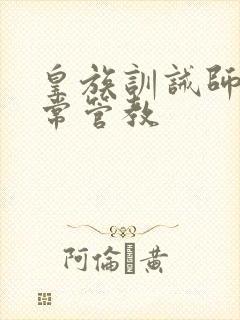 皇族訓誡師
常管教
阿倫 黃